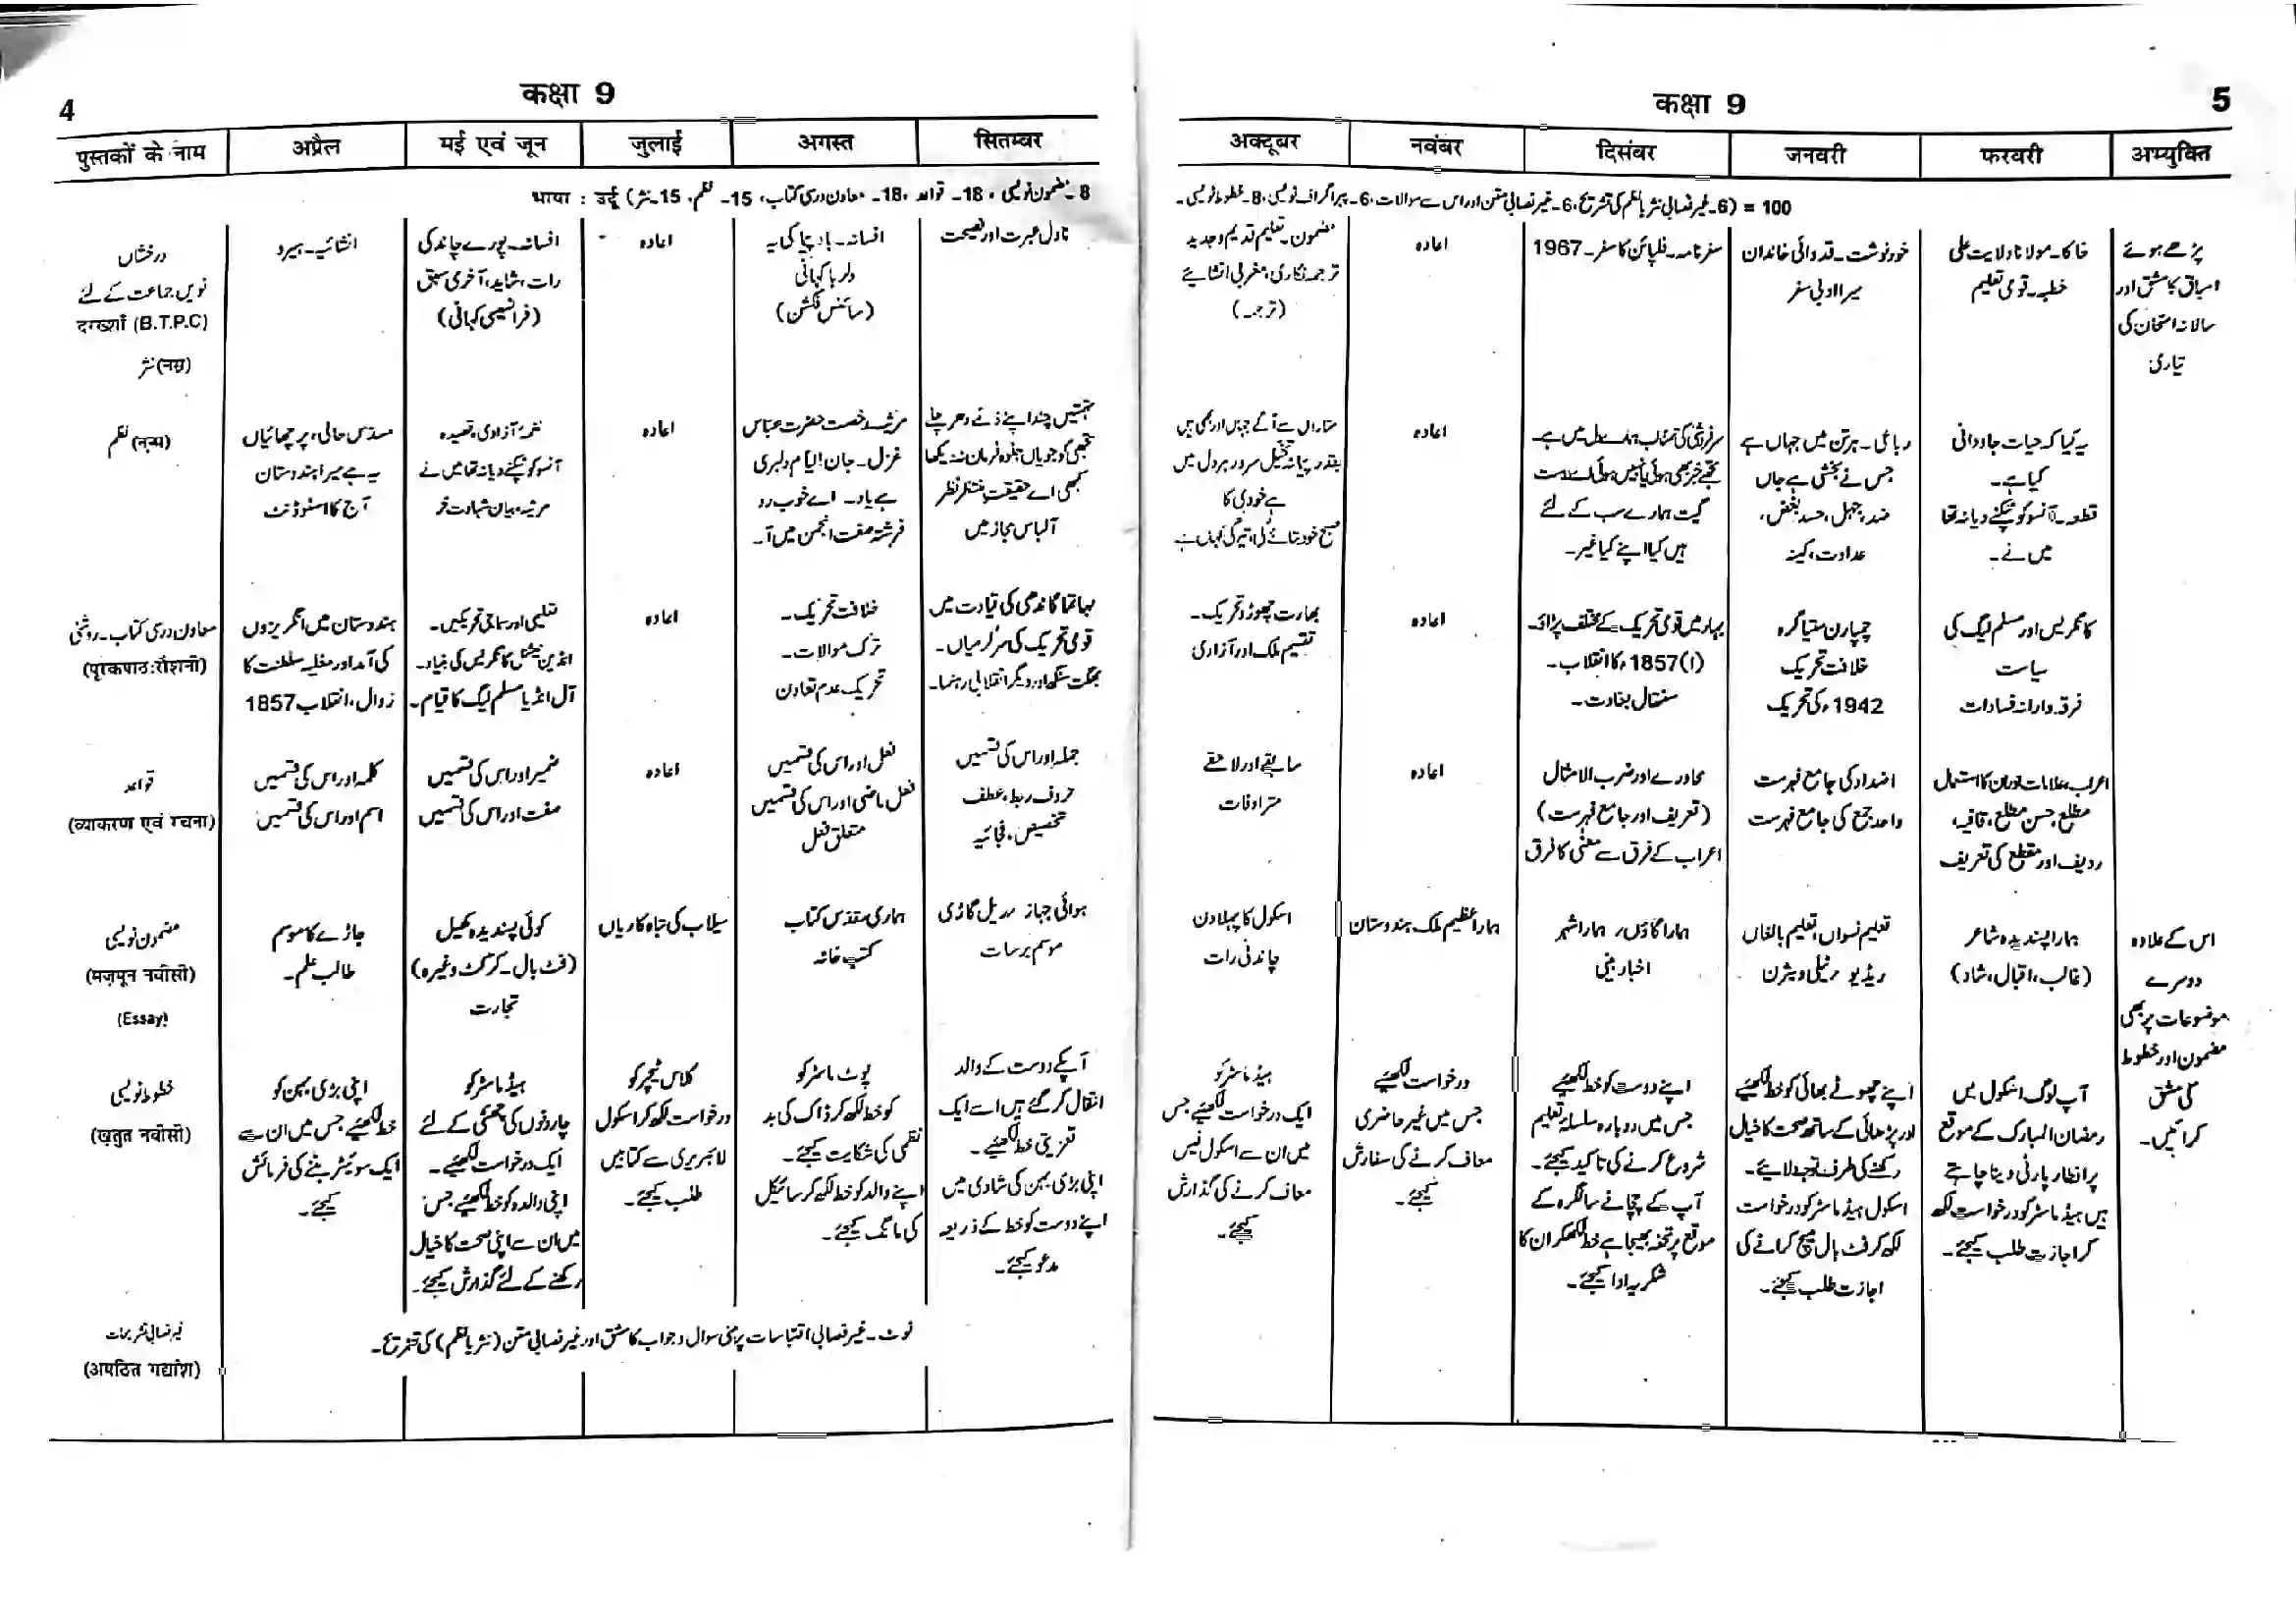 4
कक्षा 9
पुस्तकों के नाम
अप्रैल
मई एवं जून
जुलाई
अगस्त
सितम्बर
भाषा : उर्दू (نثر-15، نظم-15، معاون درسی کتاب-18، قواعد-18، مضمون نویسی-8
درخشاں
نویں جماعت کے لئے
दरख्शाँ (B.T.P.C)
نثر (नस्र)
انشائیہ۔ بیرو
افسانہ۔ پورے چاند کی
رات، شاید، آخری سبق
(فرانسیسی کہانی)
اعادہ
افسانہ۔ بادیتا کی یہ
دلربا کہانی
(سائنس فکشن)
ناول عبرت اور نصیحت
نظم (नज़्म)
مسدس حالی، پرچھائیاں
یہ ہے میرا ہندوستان
آج کا اسٹوڈنٹ
نغمۂ آزادی، قصیدہ
آنسو کو ٹپکنے دیا نہ تھا میں نے
مرثیہ، بیان شہادت حر
اعادہ
مرثیہ رخصت حضرت عباس
غزل۔ جان! ایام دلبری
ہے یاد۔ اے خوب رو
فرشتہ صفت انجمن میں آ۔
تہمتیں چند اپنے ذمے دھر چلے
تجھی کو جو یاں جلوہ فرما نہ دیکھا
کبھی اے حقیقت منتظر نظر
آ لباس مجاز میں
معاون درسی کتاب۔ روشنی
(पूरकपाठ:रौशनी)
ہندوستان میں انگریزوں
کی آمد اور مغلیہ سلطنت کا
زوال، انقلاب 1857
تعلیمی اور سماجی تحریکیں۔
انڈین نیشنل کانگریس کی بنیاد۔
آل انڈیا مسلم لیگ کا قیام۔
اعادہ
خلافت تحریک۔
ترک موالات۔
تحریک عدم تعاون
مہاتما گاندھی کی قیادت میں
قومی تحریک کی سرگرمیاں۔
بھگت سنگھ اور دیگر انقلابی رہنما۔
قواعد
(व्याकरण एवं रचना)
کلمہ اور اس کی قسمیں
اسم اور اس کی قسمیں
ضمیر اور اس کی قسمیں
صفت اور اس کی قسمیں
اعادہ
فعل اور اس کی قسمیں
فعل ماضی اور اس کی قسمیں
متعلق فعل
جملہ اور اس کی قسمیں
حروف ربط، عطف
تخصیص، فجائیہ
مضمون نویسی
(मज़मून नवीसी)
(Essay)
جاڑے کا موسم
طالب علم۔
کوئی پسندیدہ کھیل
(فٹ بال۔ کرکٹ وغیرہ)
تجارت
سیلاب کی تباہ کاریاں
ہماری مقدس کتاب
کتب خانہ
ہوائی جہاز، ریل گاڑی
موسم برسات
خطوط نویسی
(ख़ुतुत नवीसी)
اپنی بڑی بہن کو
خط لکھئے جس میں ان سے
ایک سوئیٹر بننے کی فرمائش
کیجئے۔
ہیڈ ماسٹر کو
چار دنوں کی چھٹی کے لئے
ایک درخواست لکھئے۔
اپنی والدہ کو خط لکھئے جس
میں ان سے اپنی صحت کا خیال
رکھنے کے لئے گذارش کیجئے۔
کلاس ٹیچر کو
درخواست لکھ کر اسکول
لائبریری سے کتابیں
طلب کیجئے۔
پوسٹ ماسٹر کو
کو خط لکھ کر ڈاک کی بد
نظمی کی شکایت کیجئے۔
اپنے والد کو خط لکھ کر سائیکل
کی مانگ کیجئے۔
آپ کے دوست کے والد
انتقال کر گئے ہیں اسے ایک
تعزیتی خط لکھئے۔
اپنی بڑی بہن کی شادی میں
اپنے دوست کو خط کے ذریعہ
مدعو کیجئے۔
غیر نصابی نثر پارے
(अपठित गद्यांश)
نوٹ۔ غیر نصابی اقتباسات پر مبنی سوال و جواب کا مشق اور غیر نصابی متن (نثر یا نظم) کی تشریح۔
कक्षा 9
5
अक्टूबर
नवंबर
दिसंबर
जनवरी
फरवरी
अभ्युक्ति
خطوط نویسی-8، پیراگراف نویسی-6، غیر نصابی متن اور اس سے سوالات-6، غیر نصابی نثر یا نظم کی تشریح-6) = 100
مضمون۔ تعلیم قدیم و جدید
ترجمہ نگاری، مغربی انشائیے
(ترجمہ)
اعادہ
سفرنامہ۔ فلپائن کا سفر۔ 1967
خودنوشت۔ قدوائی خاندان
میرا ادبی سفر
خاکا۔ مولانا ولایت علی
خطبہ۔ قومی تعلیم
پڑھے ہوئے
اسباق کا مشق اور
سالانہ امتحان کی
تیاری
ستاروں سے آگے جہاں اور بھی ہیں
بقدر پیمانۂ تخیل سرور ہر دل میں
ہے خودی کا
صبح خود بتائے گی، تیرگی کہاں ہے
اعادہ
سرفروشی کی تمنا اب ہمارے دل میں ہے
تجھے خبر بھی ہوئی یا نہیں ہوئی اے دوست
گیت ہمارے سب کے لئے
ہیں کیا اپنے کیا غیر۔
رباعی۔ ہر تن میں جہاں ہے
جس نے بخشی ہے جاں
ضد، جہل، حسد، بغض،
عداوت، کینہ
یہ کیا کہ حیات جاودانی
کیا ہے۔
قطعہ۔ آنسو کو ٹپکنے دیا نہ تھا
میں نے۔
بھارت چھوڑو تحریک۔
تقسیم ملک اور آزادی
اعادہ
بہار میں قومی تحریک کے مختلف پڑاؤ۔
(ا) 1857ء کا انقلاب۔
سنتھال بغاوت۔
چمپارن ستیاگرہ
خلافت تحریک
1942ء کی تحریک
کانگریس اور مسلم لیگ کی
سیاست
فرقہ وارانہ فسادات
سابقے اور لاحقے
مترادفات
اعادہ
محاورے اور ضرب الامثال
(تعریف اور جامع فہرست)
اعراب کے فرق سے معنی کا فرق
اضداد کی جامع فہرست
واحد جمع کی جامع فہرست
اعراب، علامات اور ان کا استعمال
مطلع، حسن مطلع، قافیہ،
ردیف اور مقطع کی تعریف
اسکول کا پہلا دن
چاندنی رات
ہمارا عظیم ملک ہندوستان
ہمارا گاؤں، ہمارا شہر
اخبار بینی
تعلیم نسواں، تعلیم بالغاں
ریڈیو، ٹیلی ویژن
ہمارا پسندیدہ شاعر
(غالب، اقبال، شاد)
اس کے علاوہ
دوسرے
موضوعات پر بھی
مضمون اور خطوط
کی مشق
کرائیں۔
ہیڈ ماسٹر کو
ایک درخواست لکھئے جس
میں ان سے اسکول فیس
معاف کرنے کی گذارش
کیجئے۔
درخواست لکھئے
جس میں غیر حاضری
معاف کرنے کی سفارش
کیجئے۔
اپنے دوست کو خط لکھئے
جس میں دوبارہ سلسلۂ تعلیم
شروع کرنے کی تاکید کیجئے۔
آپ کے چچا نے سالگرہ کے
موقع پر تحفہ بھیجا ہے خط لکھ کر ان کا
شکریہ ادا کیجئے۔
اپنے چھوٹے بھائی کو خط لکھئے
اور پڑھائی کے ساتھ صحت کا خیال
رکھنے کی طرف توجہ دلائیے۔
اسکول ہیڈ ماسٹر کو درخواست
لکھ کر فٹ بال میچ کرانے کی
اجازت طلب کیجئے۔
آپ لوگ اسکول میں
رمضان المبارک کے موقع
پر افطار پارٹی دینا چاہتے
ہیں ہیڈ ماسٹر کو درخواست لکھ
کر اجازت طلب کیجئے۔